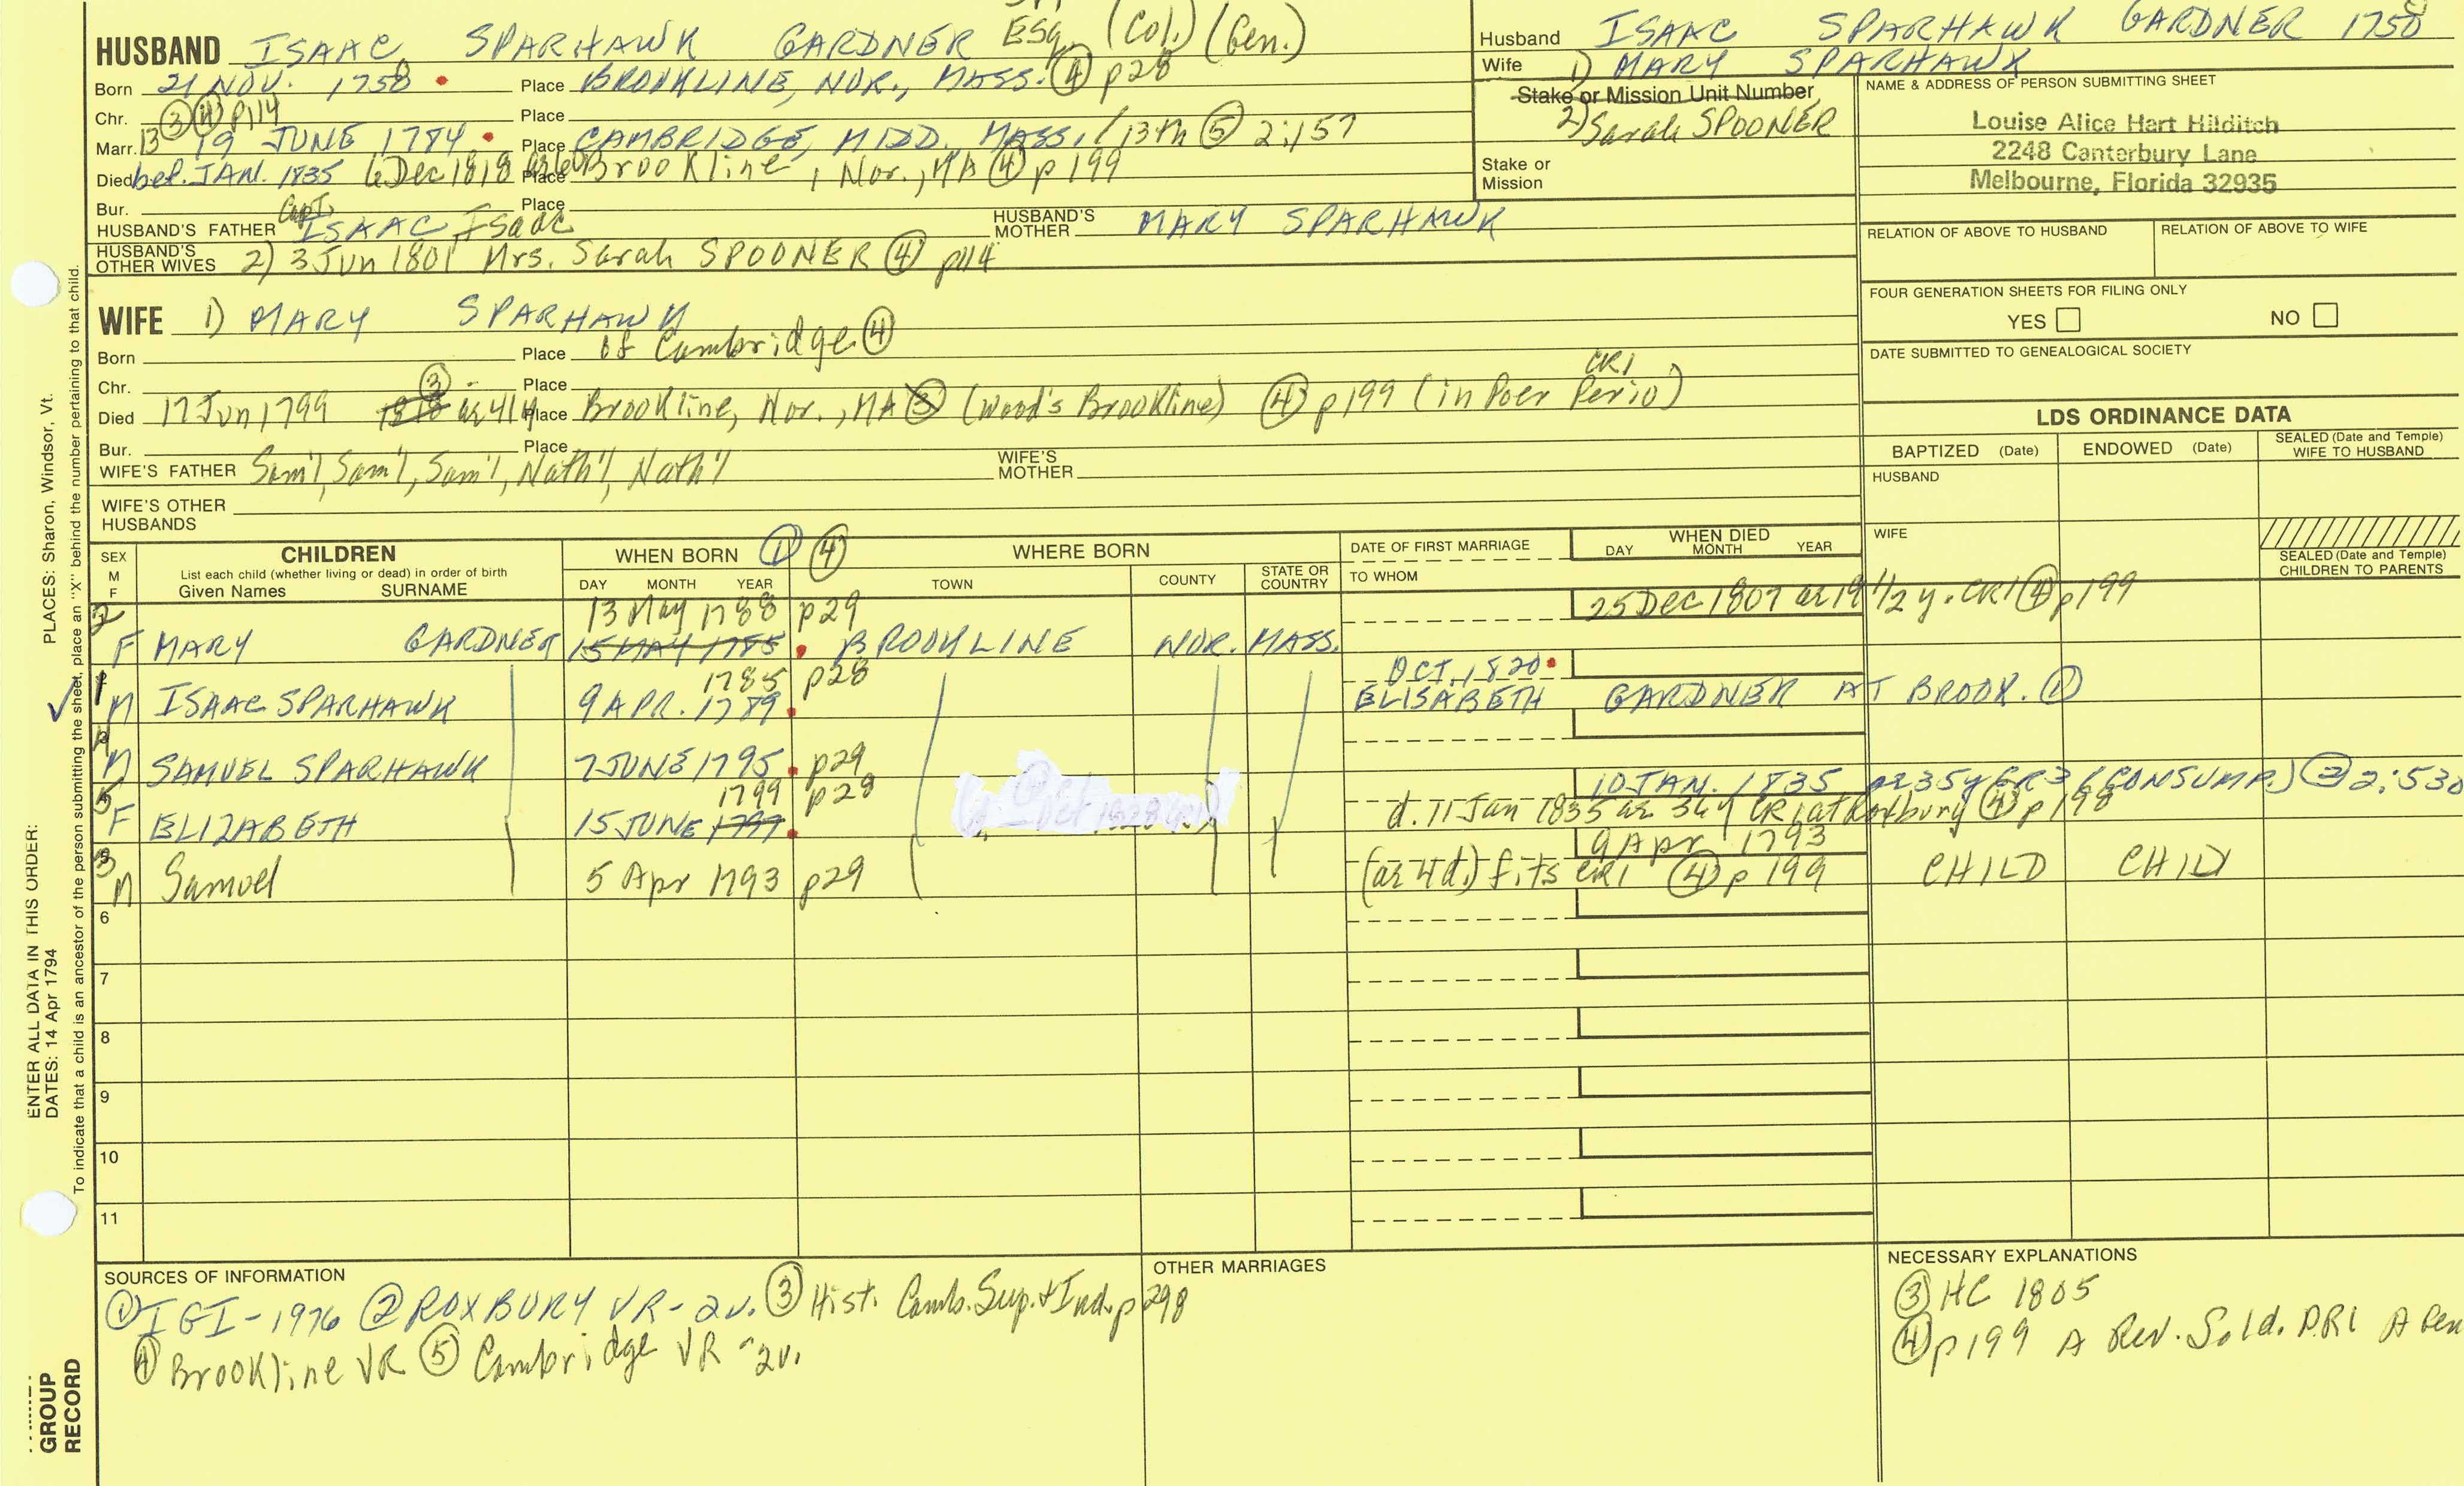 HUSBAND ISAAC SPARHAWK GARDNER ESQ. (Col.) (Gen.)
Born 21 NOV. 1758 Place BROOKLINE, NOR., MASS. ④ p28
Chr. ③ ④ p114 Place
Marr. 13 19 JUNE 1784 Place CAMBRIDGE, MIDD. MASS. / 13th ⑤ 2:157
Died bef. JAN. 1835 6 Dec 1818 ae 60 Place Brookline, Nor., MA ④ p199
Bur. Place
HUSBAND'S FATHER Capt. ISAAC, Isaac HUSBAND'S MOTHER MARY SPARHAWK
HUSBAND'S OTHER WIVES 2) 3 Jun 1801 Mrs. Sarah SPOONER ④ p114
WIFE 1) MARY SPARHAWK
Born Place of Cambridge ④
Chr. Place
Died 17 Jun 1799 ③ 1818 ae 41 y Place Brookline, Nor., MA ③ (Wood's Brookline) ④ p199 (in Poer Perio) CR1
Bur. Place
WIFE'S FATHER Sam'l, Sam'l, Sam'l, Nath'l, Nath'l WIFE'S MOTHER
WIFE'S OTHER HUSBANDS
Husband ISAAC SPARHAWK GARDNER 1758
Wife 1) MARY SPARHAWK
Stake or Mission Unit Number
2) Sarah SPOONER
Stake or Mission
NAME & ADDRESS OF PERSON SUBMITTING SHEET
Louise Alice Hart Hilditch
2248 Canterbury Lane
Melbourne, Florida 32935
RELATION OF ABOVE TO HUSBAND RELATION OF ABOVE TO WIFE
FOUR GENERATION SHEETS FOR FILING ONLY
YES NO
DATE SUBMITTED TO GENEALOGICAL SOCIETY
LDS ORDINANCE DATA
BAPTIZED (Date) ENDOWED (Date) SEALED (Date and Temple) WIFE TO HUSBAND
HUSBAND
WIFE
SEALED (Date and Temple) CHILDREN TO PARENTS
SEX M F CHILDREN WHEN BORN ① ④ WHERE BORN DATE OF FIRST MARRIAGE WHEN DIED
List each child (whether living or dead) in order of birth
Given Names SURNAME DAY MONTH YEAR TOWN COUNTY STATE OR COUNTRY TO WHOM DAY MONTH YEAR
2 13 May 1788 p29 25 Dec 1807 ae 19 1/2 y. CR1 ④ p199
F MARY GARDNER 15 MAY 1785 BROOKLINE NOR. MASS.
1 1785 p28 OCT. 1820
M ISAAC SPARHAWK 9 APR. 1789 ELISABETH GARDNER AT BROOK. ①
4
M SAMUEL SPARHAWK 7 JUNE 1795 p29
5 1799 p28 10 JAN. 1835 ae 35y GR3 (CONSUMP.) ② 2:530
F ELIZABETH 15 JUNE 1797 d. 11 Jan 1835 ae 36 y CR1 at Roxbury ④ p198
3 9 Apr 1793
M Samuel 5 Apr 1793 p29 (ae 4 d.) fits CR1 ④ p199 CHILD CHILD
6
7
8
9
10
11
SOURCES OF INFORMATION
① IGI-1976 ② ROXBURY VR-2v. ③ Hist. Camb. Sup. & Ind. p 298
④ Brookline VR ⑤ Cambridge VR-2v.
OTHER MARRIAGES
NECESSARY EXPLANATIONS
③ HC 1805
④ p199 A Rev. Sold. P.R1 A Pen
PLACES: Sharon, Windsor, Vt.
ENTER ALL DATA IN THIS ORDER:
DATES: 14 Apr 1794
To indicate that a child is an ancestor of the person submitting the sheet, place an "X" behind the number pertaining to that child.
GROUP
RECORD